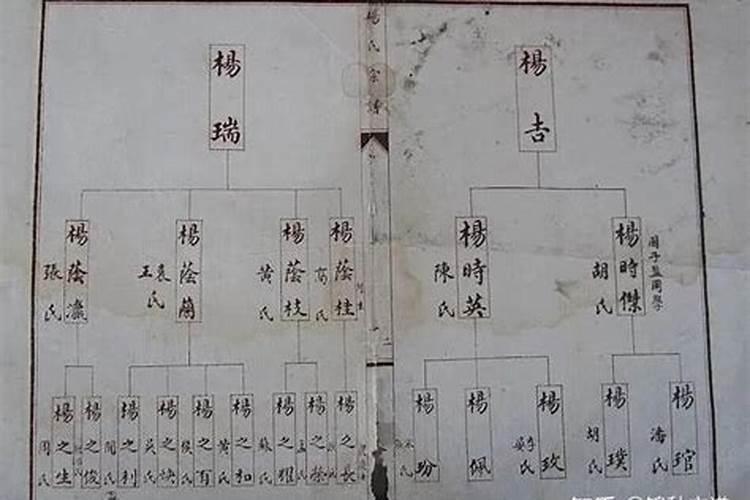 楊氏宗譜
楊吉
楊時傑
國子監國學
胡氏
楊時英
陳氏
楊琯
潘氏
楊璞
胡氏
楊玫
楊佩
楊玢
二
楊瑞
楊蔭桂
高氏
楊蔭枝
黃氏
楊蔭蘭
袁
王
氏
楊蔭瀛
張氏
楊之長
楊之榮
孟氏
楊之耀
蘇氏
楊之和
黃氏
楊之百
侯氏
楊之訣
吳氏
楊之利
閻氏
楊之俊
楊之生
周氏
知乎